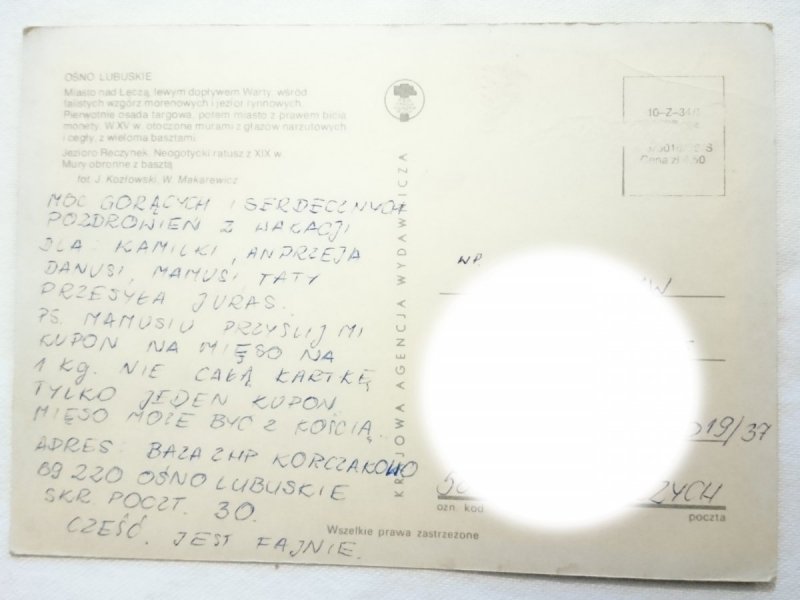 OŚNO LUBUSKIE
Miasto nad Łęczą, lewym dopływem Warty, wśród
falistych wzgórz morenowych i jezior rynnowych.
Pierwotnie osada targowa, potem miasto z prawem bicia
monety. W XV w. otoczone murami z głazów narzutowych
i cegły, z wieloma basztami.
Jezioro Reczynek. Neogotycki ratusz z XIX w.
Mury obronne z basztą
fot. J. Kozłowski, W. Makarewicz
MOC GORĄCYCH I SERDECZNYCH
POZDROWIEŃ Z WAKACJI
DLA KAMILKI, ANDRZEJA
DANUSI, MAMUSI TATY
PRZESYŁA JURAS.
PS. MAMUSIU PRZYSLIJ MI
KUPON NA MIĘSO NA
1 KG. NIE CAŁĄ KARTKĘ
TYLKO JEDEN KUPON
MIĘSO MOŻE BYĆ Z KOŚCIĄ.
ADRES: BAZA ZHP KORCZAKOWO
69 220 OŚNO LUBUSKIE
SKR POCZT. 30.
CZEŚĆ. JEST FAJNIE.
KRAJOWA AGENCJA WYDAWNICZA
10-Z-34/1
Cena zł 4,50
WP.
W
19/37
ZYCH
ozn. kod
poczta
Wszelkie prawa zastrzeżone